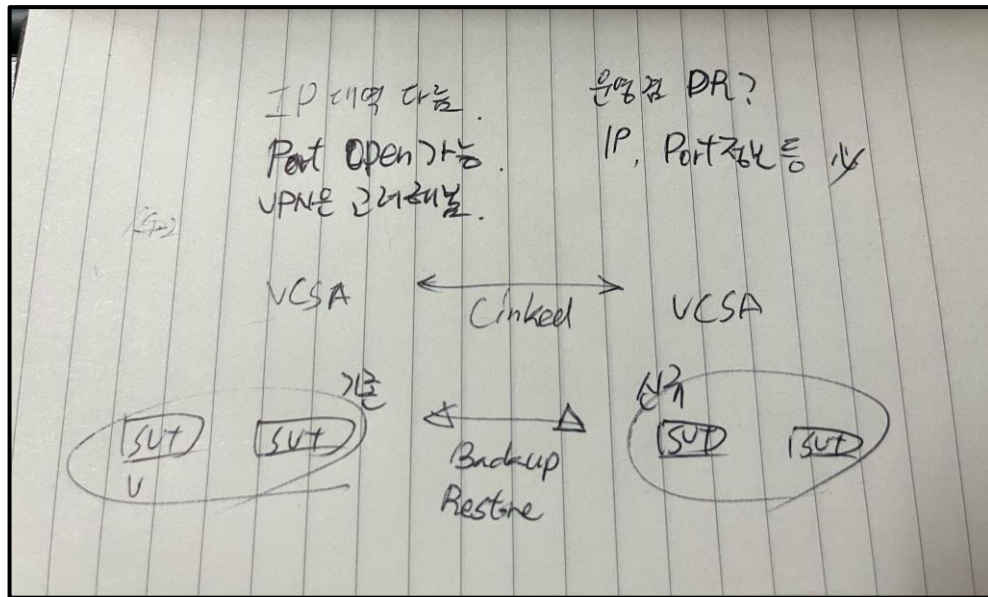 IP 대역 다름.
Port Open 가능.
VPN은 고려해봄.
운영겸 DR?
IP, Port 정보 등 必
VCSA
Linked
VCSA
기존
SVT
SVT
U
Backup
Restore
신규
SVT
SVT